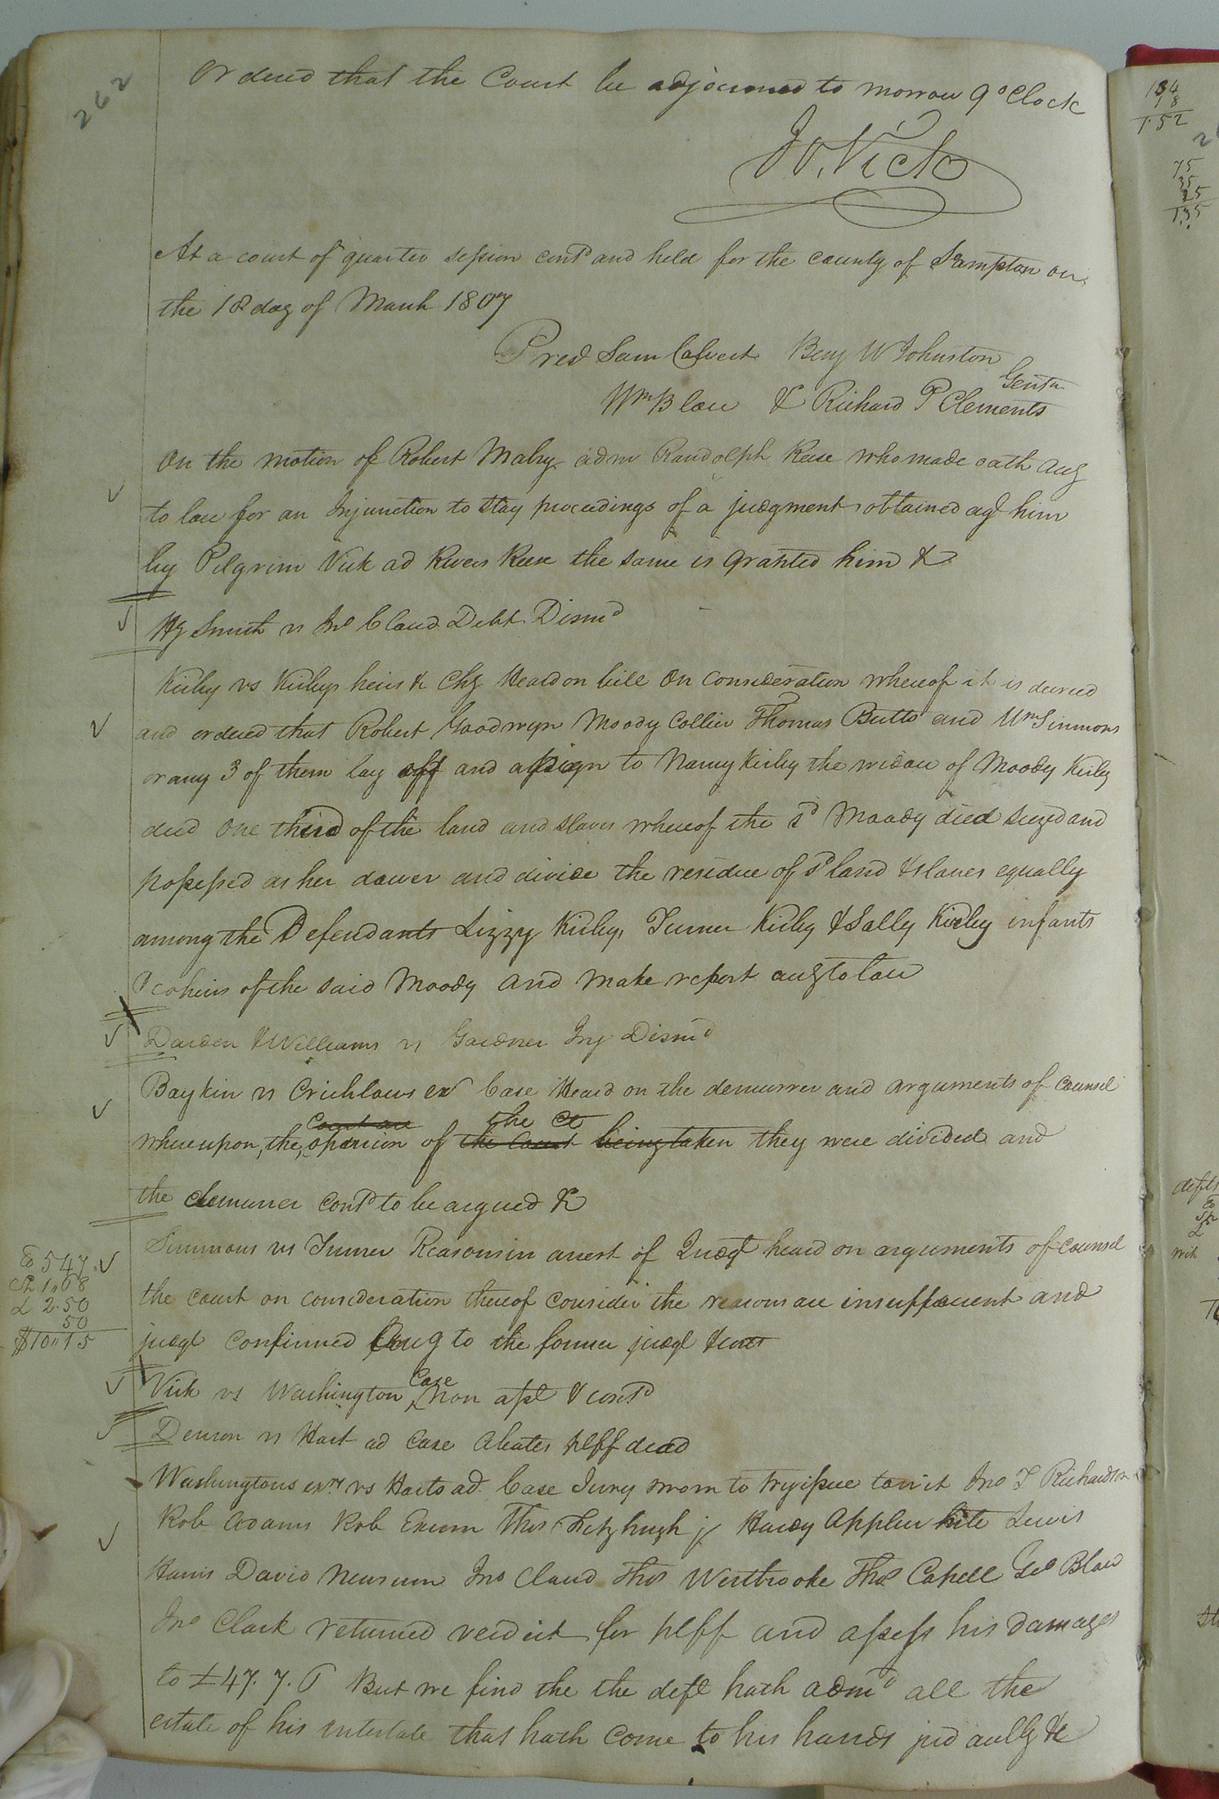 262
Ordered that the Court be adjourned to morrow 9 oClock
Jo. Vick
At a court of quarter session contd and held for the county of Sampton on
the 18 day of March 1807
Pres Sam Calvert Benj W Johnston
Gentn
Wm Blow & Richard P Clements
On the motion of Robert Mabry adm Randolph Rese who made oath
to law for an Injunction to stay proceedings of a judgment obtained agt him
by Pilgrim Vick ad Rivers Rese the same is granted him &
Hy Smith vs Jno Claud Debt Dismd
Kirby vs Kirbys heirs In Chy Heard on bill On consideration whereof it is decreed
and ordered that Robert Goodwyn Moody Collier Thomas Butts and Wm Simmons
or any 3 of them lay off and assign to Nancy Kirby the widow of Moody Kirby
decd one third of the land and slaves whereof the sd Moody died seized and
possessed as her dower and divide the residue of sd land & slaves equally
among the Defendants Lizzy Kirby, Turner Kirby & Sally Kirby infants
& coheirs of the said Moody and make report to law
Darden & Williams vs Gardner Inj Dismd
Boykin vs Crichlows ex Case Heard on the demurrer and arguments of counsel
the Ct
whereupon, the, opinion of the Court being taken they were divided and
the demurrer contd to be argued &
Simmons vs Turner Reasons in arrest of Judgt heard on arguments of counsel
547
1.08
2.50
50
$10.15
the court on consideration thereof consider the reasons are insufficient and
judgt confirmed to the former judgt
Case
Vick vs Washington Non ast & contd
Denson vs Hart ad Case abates plff dead
Washingtons exrs vs Harts ad Case Jury sworn to try issue towit Jno T Richardson
Rob Adams Rob Exum Thos Fitzhugh jr Hardy Applewhite Lewis
Harris David Newsum Jno Claud Thos Westbrooke Thos Capell Geo Blow
Jno Clark returned verdict for plff and assess his damages
to £47. 7. But we find the the deft hath admd all the
estate of his intestate that hath come to his hands &c
184
18
152
75
35
25
135